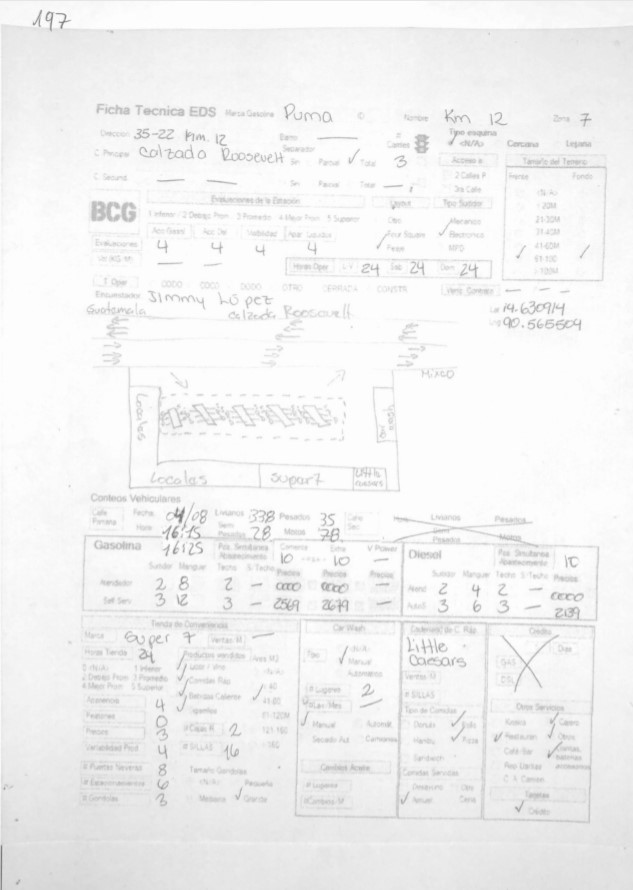 197
Ficha Tecnica EDS Marca Gasolina Puma Nombre Km 12 Zona 7
Direccion 35-22 Km. 12 Barrio — # Carriles Tipo esquina <N/A> Cercana Lejana
C. Principal Calzada Roosevelt Separador Sin Parcial ✓ Total 3 Acceso a Tamaño del Terreno
2 Calles P Frente Fondo
C. Secund — — Sin Parcial Total — 3ra Calle <N/A>
BCG Evaluaciones de la Estación Layout Tipo Surtidor 1 20M
1 Inferior / 2 Debajo Prom 3 Promedio 4 Mejor Prom 5 Superior Otro Mecanico 21-30M
Visibilidad ✓ Four Square ✓ Electronico 31-40M
Evaluaciones 4 4 4 4 MPD 41-60M
— — Horas Oper L-V 24 Sab 24 Dom 24 61-100
>100M
T. Oper CODO COCO DODO OTRO CERRADA CONSTR Venc Contrato — — —
Encuestador Jimmy López Lat 14.630914
Guatemala Calzada Roosevelt 90.565509
Mixco
Locales
Locales Super 7 Little Caesars
Conteos Vehiculares
Fecha 04/08 Livianos 338 Pesados 35 Hora Livianos Pesados
Hora 16:15 Semi Pesados 28 Motos 78 Pesados Motos
16:25
Gasolina Pos. Simultanea Abastecimiento Corriente 10 Extra 10 V Power — Diesel Pos. Simultanea Abastecimiento 10
Surtidor Manguer Techo S/Techo Precios Precios Precios Surtidor Manguer Techo S/Techo Precios
Atendedor 2 8 2 — 0000 0000 — Atend 2 4 2 — 0000
Self Serv 3 12 3 — 2569 2679 — AutoS 3 6 3 — 2139
Tienda de Conveniencia Car Wash Cadena(s) de C. Rap Credito
Marca Super 7 Ventas M — Little Caesars Dias
Horas Tienda 24 Productos vendidos Area M2 Tipo <N/A> GAS
<N/A> 1 Inferior ✓ <N/A> ✓ Manual Ventas M DSL
2 Debajo Prom 3 Promedio ✓ Comidas Rap 40 Automatico # SILLAS
4 Mejor Prom 5 Superior ✓ Bebidas Caliente 41-80 # Lugares 2 Tipo de Comidas Otros Servicios
Apariencia 4 ✓ 81-120M — Donuts ✓ Pollo Kiosko ✓ Cajero
Peatones 0 # Cajas R 2 121-160 ✓ Manual Automat. Hambu ✓ Pizza ✓ Restauran ✓ Otros
Precios 3 >160 Secado Aut Sandwich Café-Bar
Variabilidad Prod 4 # SILLAS 16 Comidas Servidas Rep Llantas
# Puertas Neveras 8 Tamaño Gondolas Cambios Aceite Desayuno Otro
# Estacionamientos 6 <N/A> Pequeña # Lugares ✓ Almuer Cena Tarjetas
# Gondolas 3 Mediana ✓ Grande #Cambios M ✓ Credito